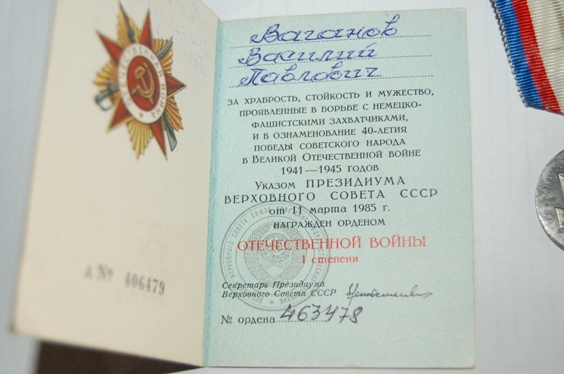 А № 406479
Ваганов
Василий
Павлович
ЗА ХРАБРОСТЬ, СТОЙКОСТЬ И МУЖЕСТВО,
ПРОЯВЛЕННЫЕ В БОРЬБЕ С НЕМЕЦКО-
ФАШИСТСКИМИ ЗАХВАТЧИКАМИ,
И В ОЗНАМЕНОВАНИЕ 40-ЛЕТИЯ
ПОБЕДЫ СОВЕТСКОГО НАРОДА
В ВЕЛИКОЙ ОТЕЧЕСТВЕННОЙ ВОЙНЕ
1941—1945 ГОДОВ
УКАЗОМ ПРЕЗИДИУМА
ВЕРХОВНОГО СОВЕТА СССР
от 11 марта 1985 г.
НАГРАЖДЕН ОРДЕНОМ
ОТЕЧЕСТВЕННОЙ ВОЙНЫ
I степени
Секретарь Президиума
Верховного Совета СССР
№ ордена 463478